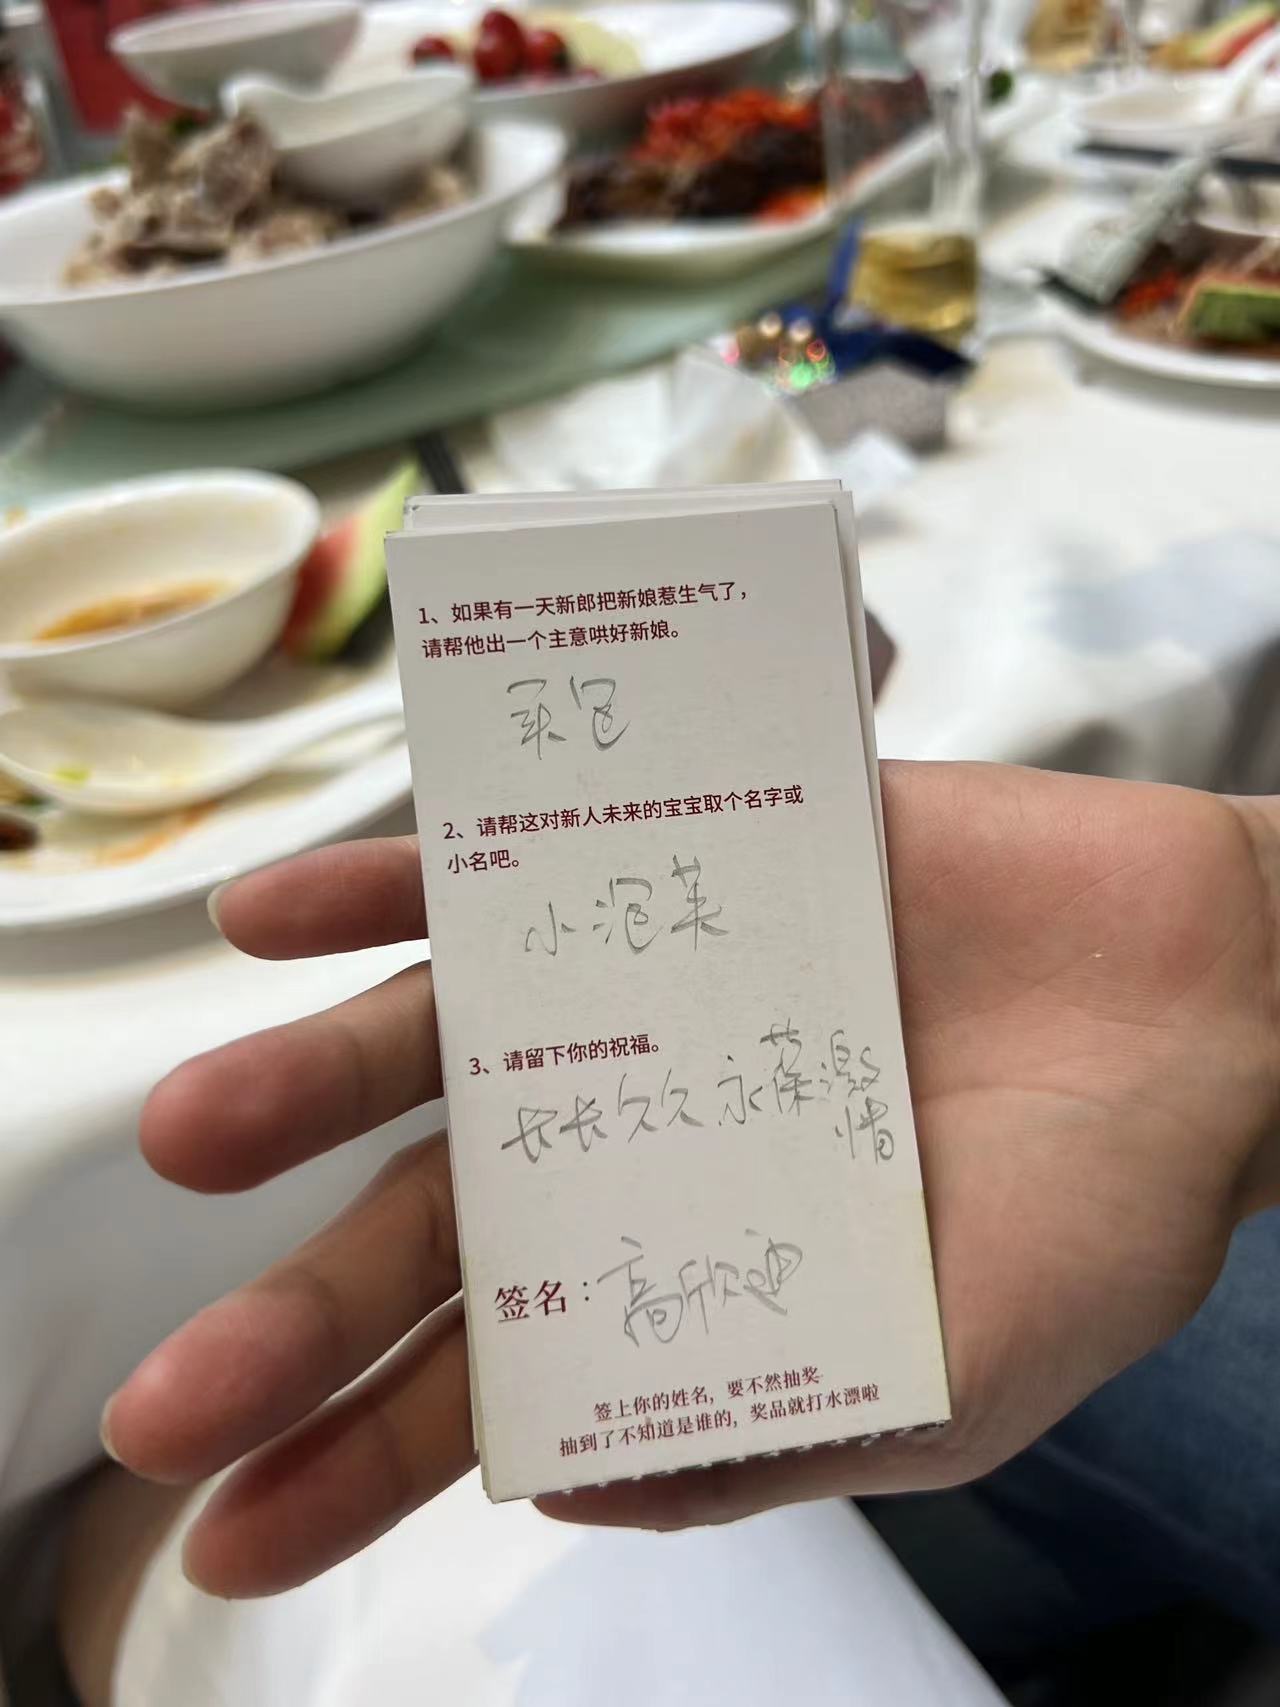 1、如果有一天新郎把新娘惹生气了，
请帮他出一个主意哄好新娘。
买包
2、请帮这对新人未来的宝宝取个名字或
小名吧。
小泡芙
3、请留下你的祝福。
长长久久永葆激
情
签名：高欣迪
签上你的姓名，要不然抽奖
抽到了不知道是谁的，奖品就打水漂啦